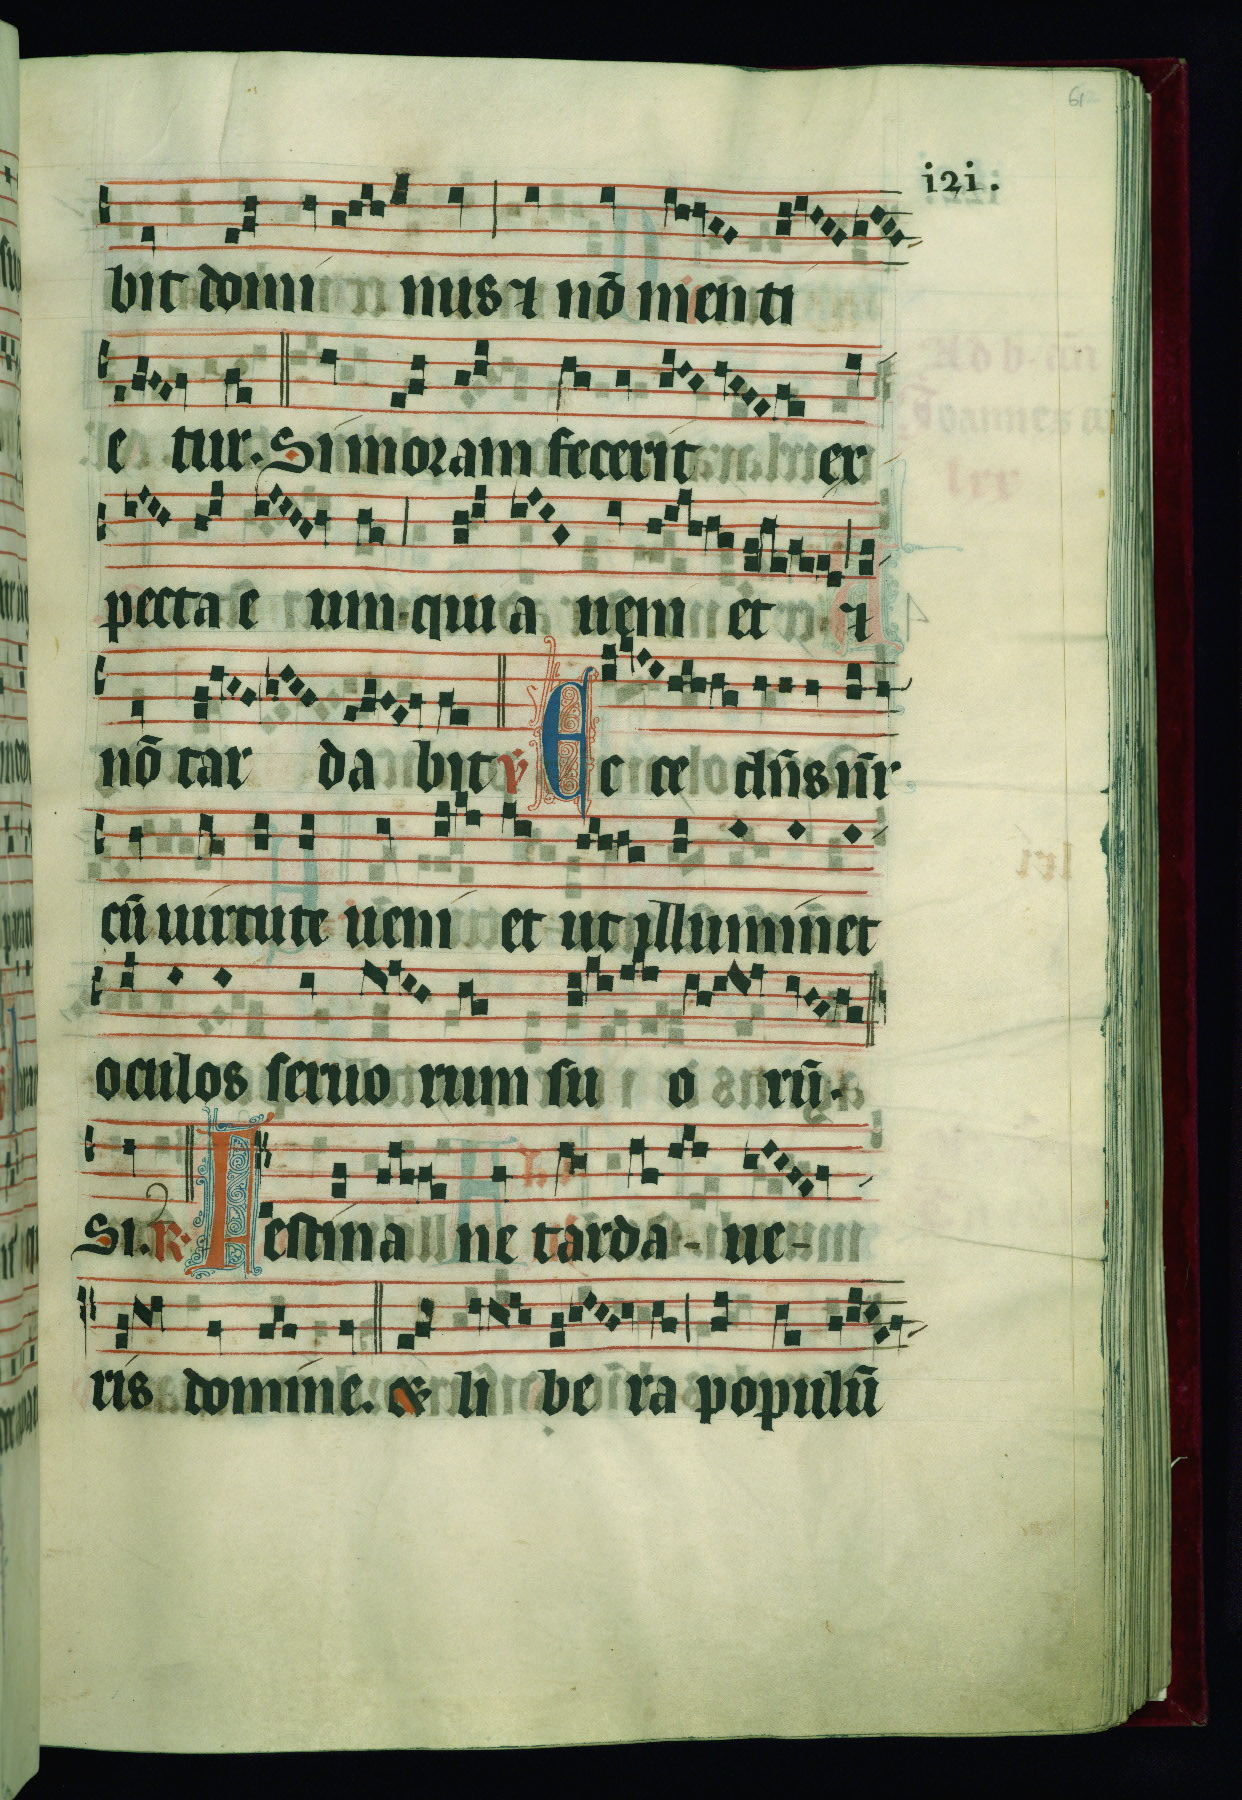 612
i2i.
bit domi nus ⁊ nō menti
e tur. Si moram fecerit ex
pecta e um. qui a ueni et ⁊
nō tar da bit ℣ Ec ce dn̄s nr̄
cū uirtute ueni et ut illumin̄et
oculos seruo rum su o rū.
Si. ℟. Festina ne tarda - ue-
ris domine. & li be ra populū